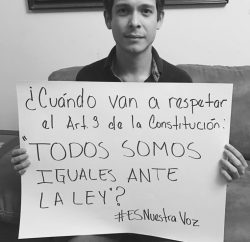 ¿Cuándo van a respetar
el Art. 3 de la Constitución:
"TODOS SOMOS
IGUALES ANTE
LA LEY"?
#ESNuestraVoz